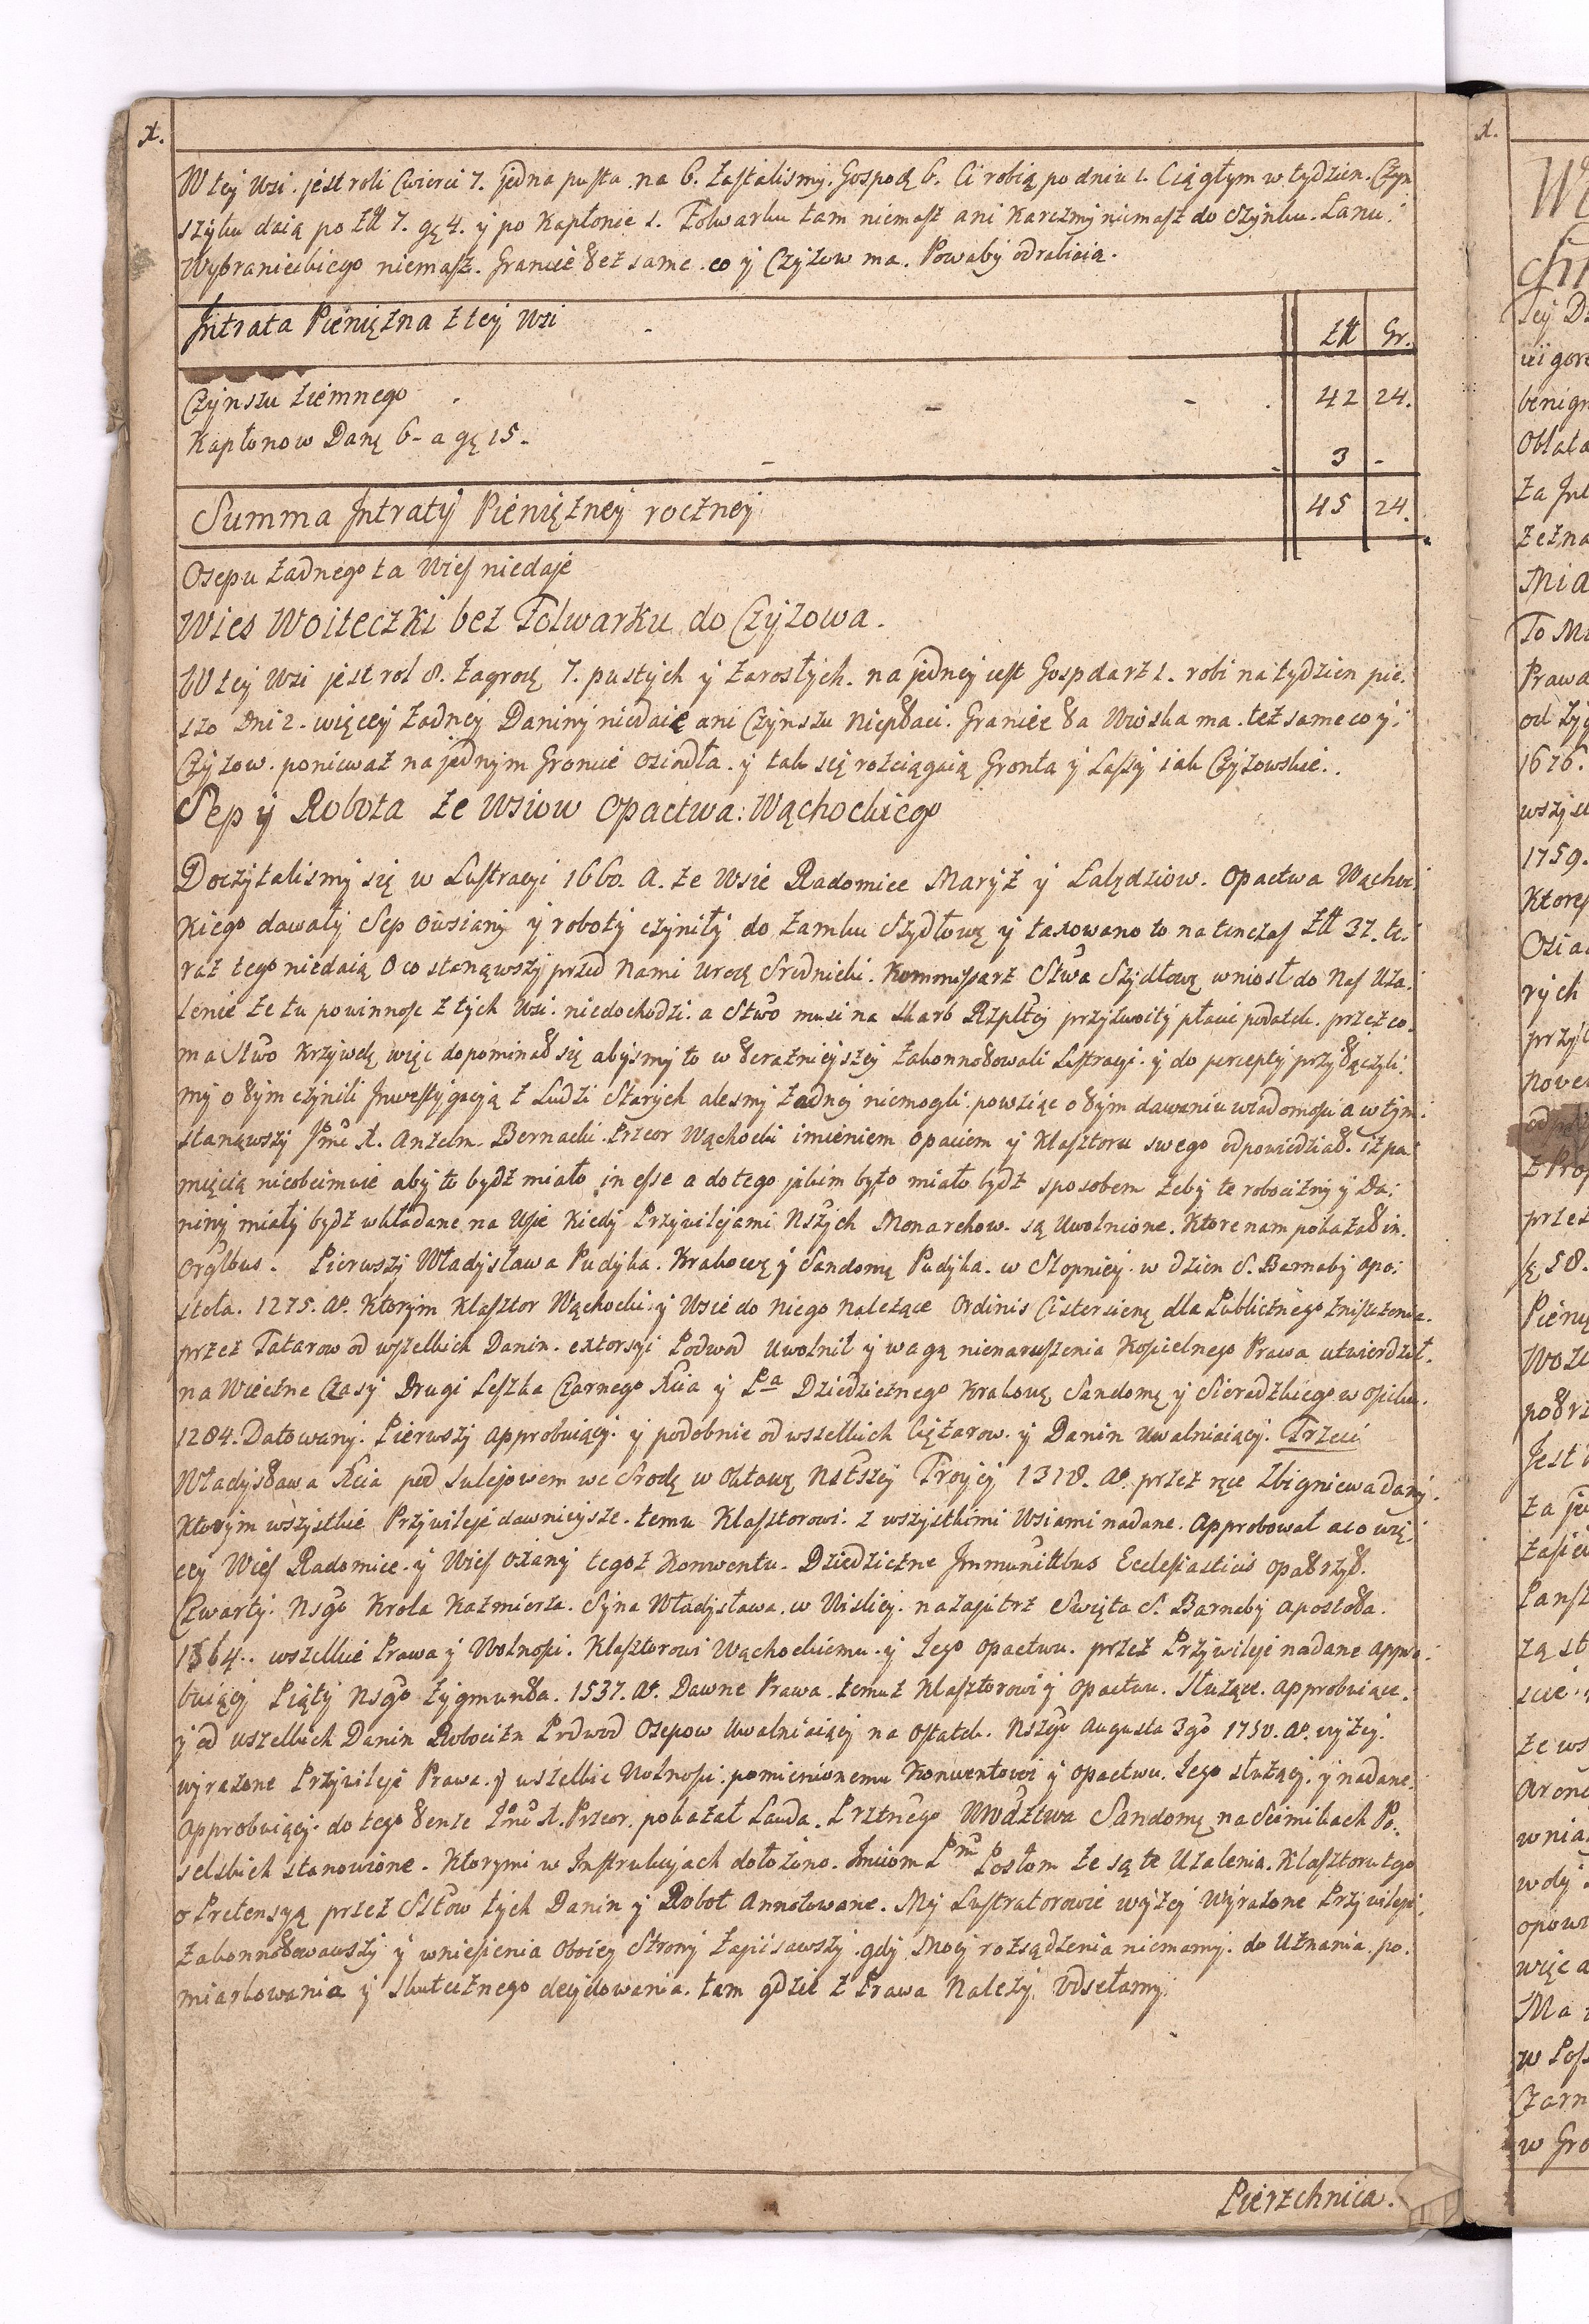 x.
W tey Wsi jest roli Cwierci 7. jedna pusta na 6. zastalismy Gospod. 6. Ci robią po dniu 1. Ciągłym w tydzien. Czyn
szyku daią po Złł 7. gę 4. y po Kapłonie 1. Folwarku tam niemasz ani Karczmy niemasz do Szynku. Łanu:
Wybranieckiego niemasz. Granice też same co y Czyzow ma. Powaby odrabiaią.
Jntrata Pieniężna z tey Wsi
Złł Gr.
Czynszu Ziemnego - - 42 24.
Kapłonow Danę 6 - a gę 15. - 3 -
Summa Jntraty Pieniężney roczney 45 24.
Osepu żadnego ta Wies niedaje
Wies Woiteczki bez Folwarku do Czyzowa.
W tey Wsi jest rol 8. Zagrod 7. pustych y zarosłych. na jedney iest Gospdarz 1. robi na tydzien pie:
szo Dni 2. więcey żadney Daniny niedaie ani Czynszu niepłaci. Granice ta Wioska ma też same co y:
Czyzow. poniewaz na jednym Groncie osiadła y tak się rozciągaią Gronta y Lassy iak Czyzowskie.
Sep y Robota ze Wsiow Opactwa: Wąchockiego
Doczytalismy się w Lustracyi 1660. A. ze Wsie Radomice Maryż y Lalędziow. Opactwa Wąchoc:
kiego dawały Sep Owsiany y roboty czyniły do Zamku Szydłowę y taxowano to natenczas Złł 37. te:
raz tego niedaią O co stanąwszy przed Nami Urodz Srednicki. Kommissarz Stwa Szydłowę wniosł do Nas Uża:
lenie że tu powinnosc z tych Wsi niedochodzi. a Stwo musi na skarb Rzpltey przyzwoity płacic podatek. przez co
ma Stwo Krzywdę więc dopominał się abysmy to w teraznieyszey zakonnotowali Lustracyi y do percepty przyłączyli:
my o tym czynili Jnwestygacyją z Ludzi Starych alesmy żadney niemogli powziąc o tym dawaniu wiadomosci a w tym:
stanąwszy Jmc X. Anzelm Bernacki Przeor Wąchocki imieniem Opaciem y Klasztoru swego odpowiedział. iż pa:
mięcią nieobeimuie aby to bydz miało in esse a do tego jakim było miało bydz sposobem żeby te robocizny y Da:
niny miały bydz wkładane na Wsie kiedy Przywilejami Nszych Monarchow są Uwolnione. Ktore nam pokazał in
Orglbus. Pierwszy Władysława Pudyka. Krakowę y Sandomę Pudyka. w Stopnicy w dzien S. Barnaby Apo:
stoła. 1275. A⁰. Ktorym Klasztor Wąchocki y Wsie do niego Należące Ordinis Cistersienę dla Publicznego zniszczenia
przez Tatarow od wszelkich Danin. extorsyi Podwod Uwolnił y wagą nienaruszenia Koscielnego Prawa utwierdził.
na Wieczne Czasy Drugi Leszka Czarnego Xcia y Pa Dziedzicznego Krakowę Sandomę y Sieradzkiego w Opiku.
1284. Datowany. Pierwszy approbuiący y podobnie od wszelkich Ciężarow y Danin Uwalniaiący. Trzeci
Władysława Xcia pod Sulejowem we Srodę w Oktawę Nstszey Troycy 1318. A⁰. przez ręce Zbigniewa dany
Ktorym wszystkie Przywileje dawnieysze temu Klasztorowi z wszystkimi Wsiami nadane. Approbował a co wię:
cey Wies Radomice y Wies Ożany tegoż Konwentu. Dziedziczne Jmmunittbus Ecclesiasticis opatrzył.
Czwarty. Nsgo Krola Kazmierza. Syna Władysława w Wislicy nazajutrz Swięta S. Barnaby Apostoła.
1364. wszelkie Prawa y Wolnosci. Klasztorowi Wąchockiemu y Jego Opactwu. przez Przywileje nadane Appro:
buiący Piąty Nsgo Zygmunta. 1537. A⁰. Dawne Prawa temuż Klasztorowi y Opactwu. Służące. approbuiące.
y od wszelkich Danin Robocizn Podwod Osepow Uwalniaiący na Ostatek. Nszego Augusta 3go 1750. A⁰. wyżey.
wyrażone Przywileje Prawa y wszelkie Wolnosci pomienionemu Konwentowi y Opactwu. Jego służący y nadane.
Approbuiący. do tego tenże Jmc X. Przeor pokazał Lauda. Prztnego Wwodztwa Sandomę na Seimikach Po:
selskich stanowione. Ktorymi w Jnstrukcyach dołożono. Jmciom Pm Posłom że są te Użalenia. Klasztoru tego
o Pretensyą przez Sttow tych Danin y Robot Annotowane. My Lustratorowie wyżey Wyrażone Przywileje
zakonnotowawszy y wniesienia Oboiey Strony zapisawszy gdy Mocy rozsądzenia niemamy. do Uznania po:
miarkowania y skutecznego decydowania. tam gdzie z Prawa Należy Odsełamy
Pierzchnica.